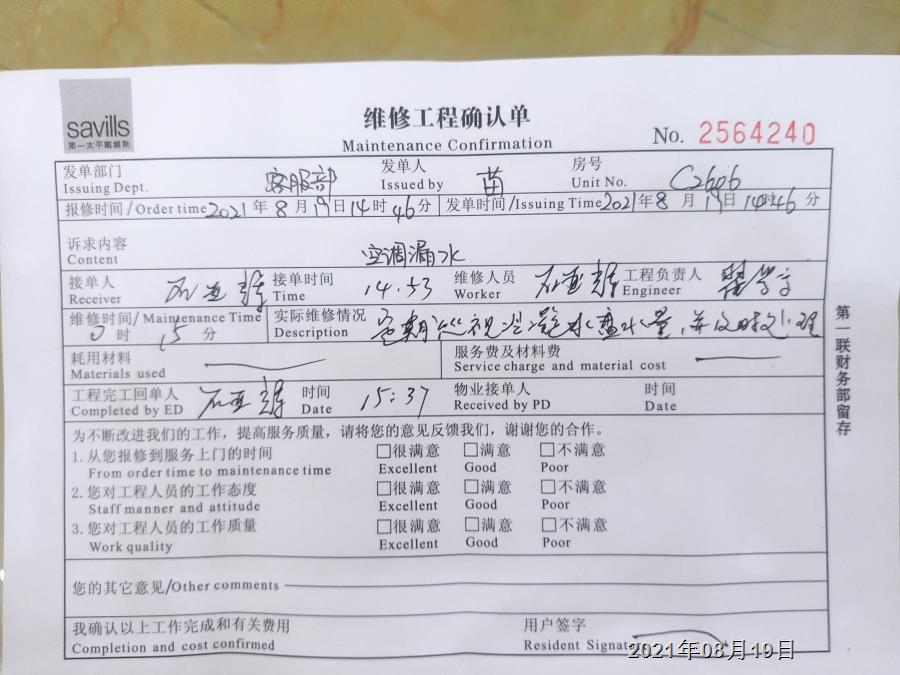 savills
第一太平戴維斯
维修工程确认单
Maintenance Confirmation
No. 2564240
发单部门 客服部 发单人 苗 房号 C2606
Issuing Dept. Issued by Unit No.
报修时间/Order time 2021年8月19日14时46分 发单时间/Issuing Time 2021年8月19日14时46分
诉求内容 空调漏水
Content
接单人 接单时间 14.53 维修人员 工程负责人
Receiver Time Worker Engineer
维修时间/Maintenance Time 0时15分 实际维修情况 定期巡视冷凝水盘水量,并及时处理
Description
耗用材料 服务费及材料费
Materials used Service charge and material cost
工程完工回单人 时间 15:37 物业接单人 时间
Completed by ED Date Received by PD Date
为不断改进我们的工作,提高服务质量,请将您的意见反馈我们,谢谢您的合作。
1.从您报修到服务上门的时间 □很满意 □满意 □不满意
From order time to maintenance time Excellent Good Poor
2.您对工程人员的工作态度 □很满意 □满意 □不满意
Staff manner and attitude Excellent Good Poor
3.您对工程人员的工作质量 □很满意 □满意 □不满意
Work quality Excellent Good Poor
您的其它意见/Other comments
我确认以上工作完成和有关费用 用户签字
Completion and cost confirmed Resident Signat
第一联财务部留存
2021年08月19日